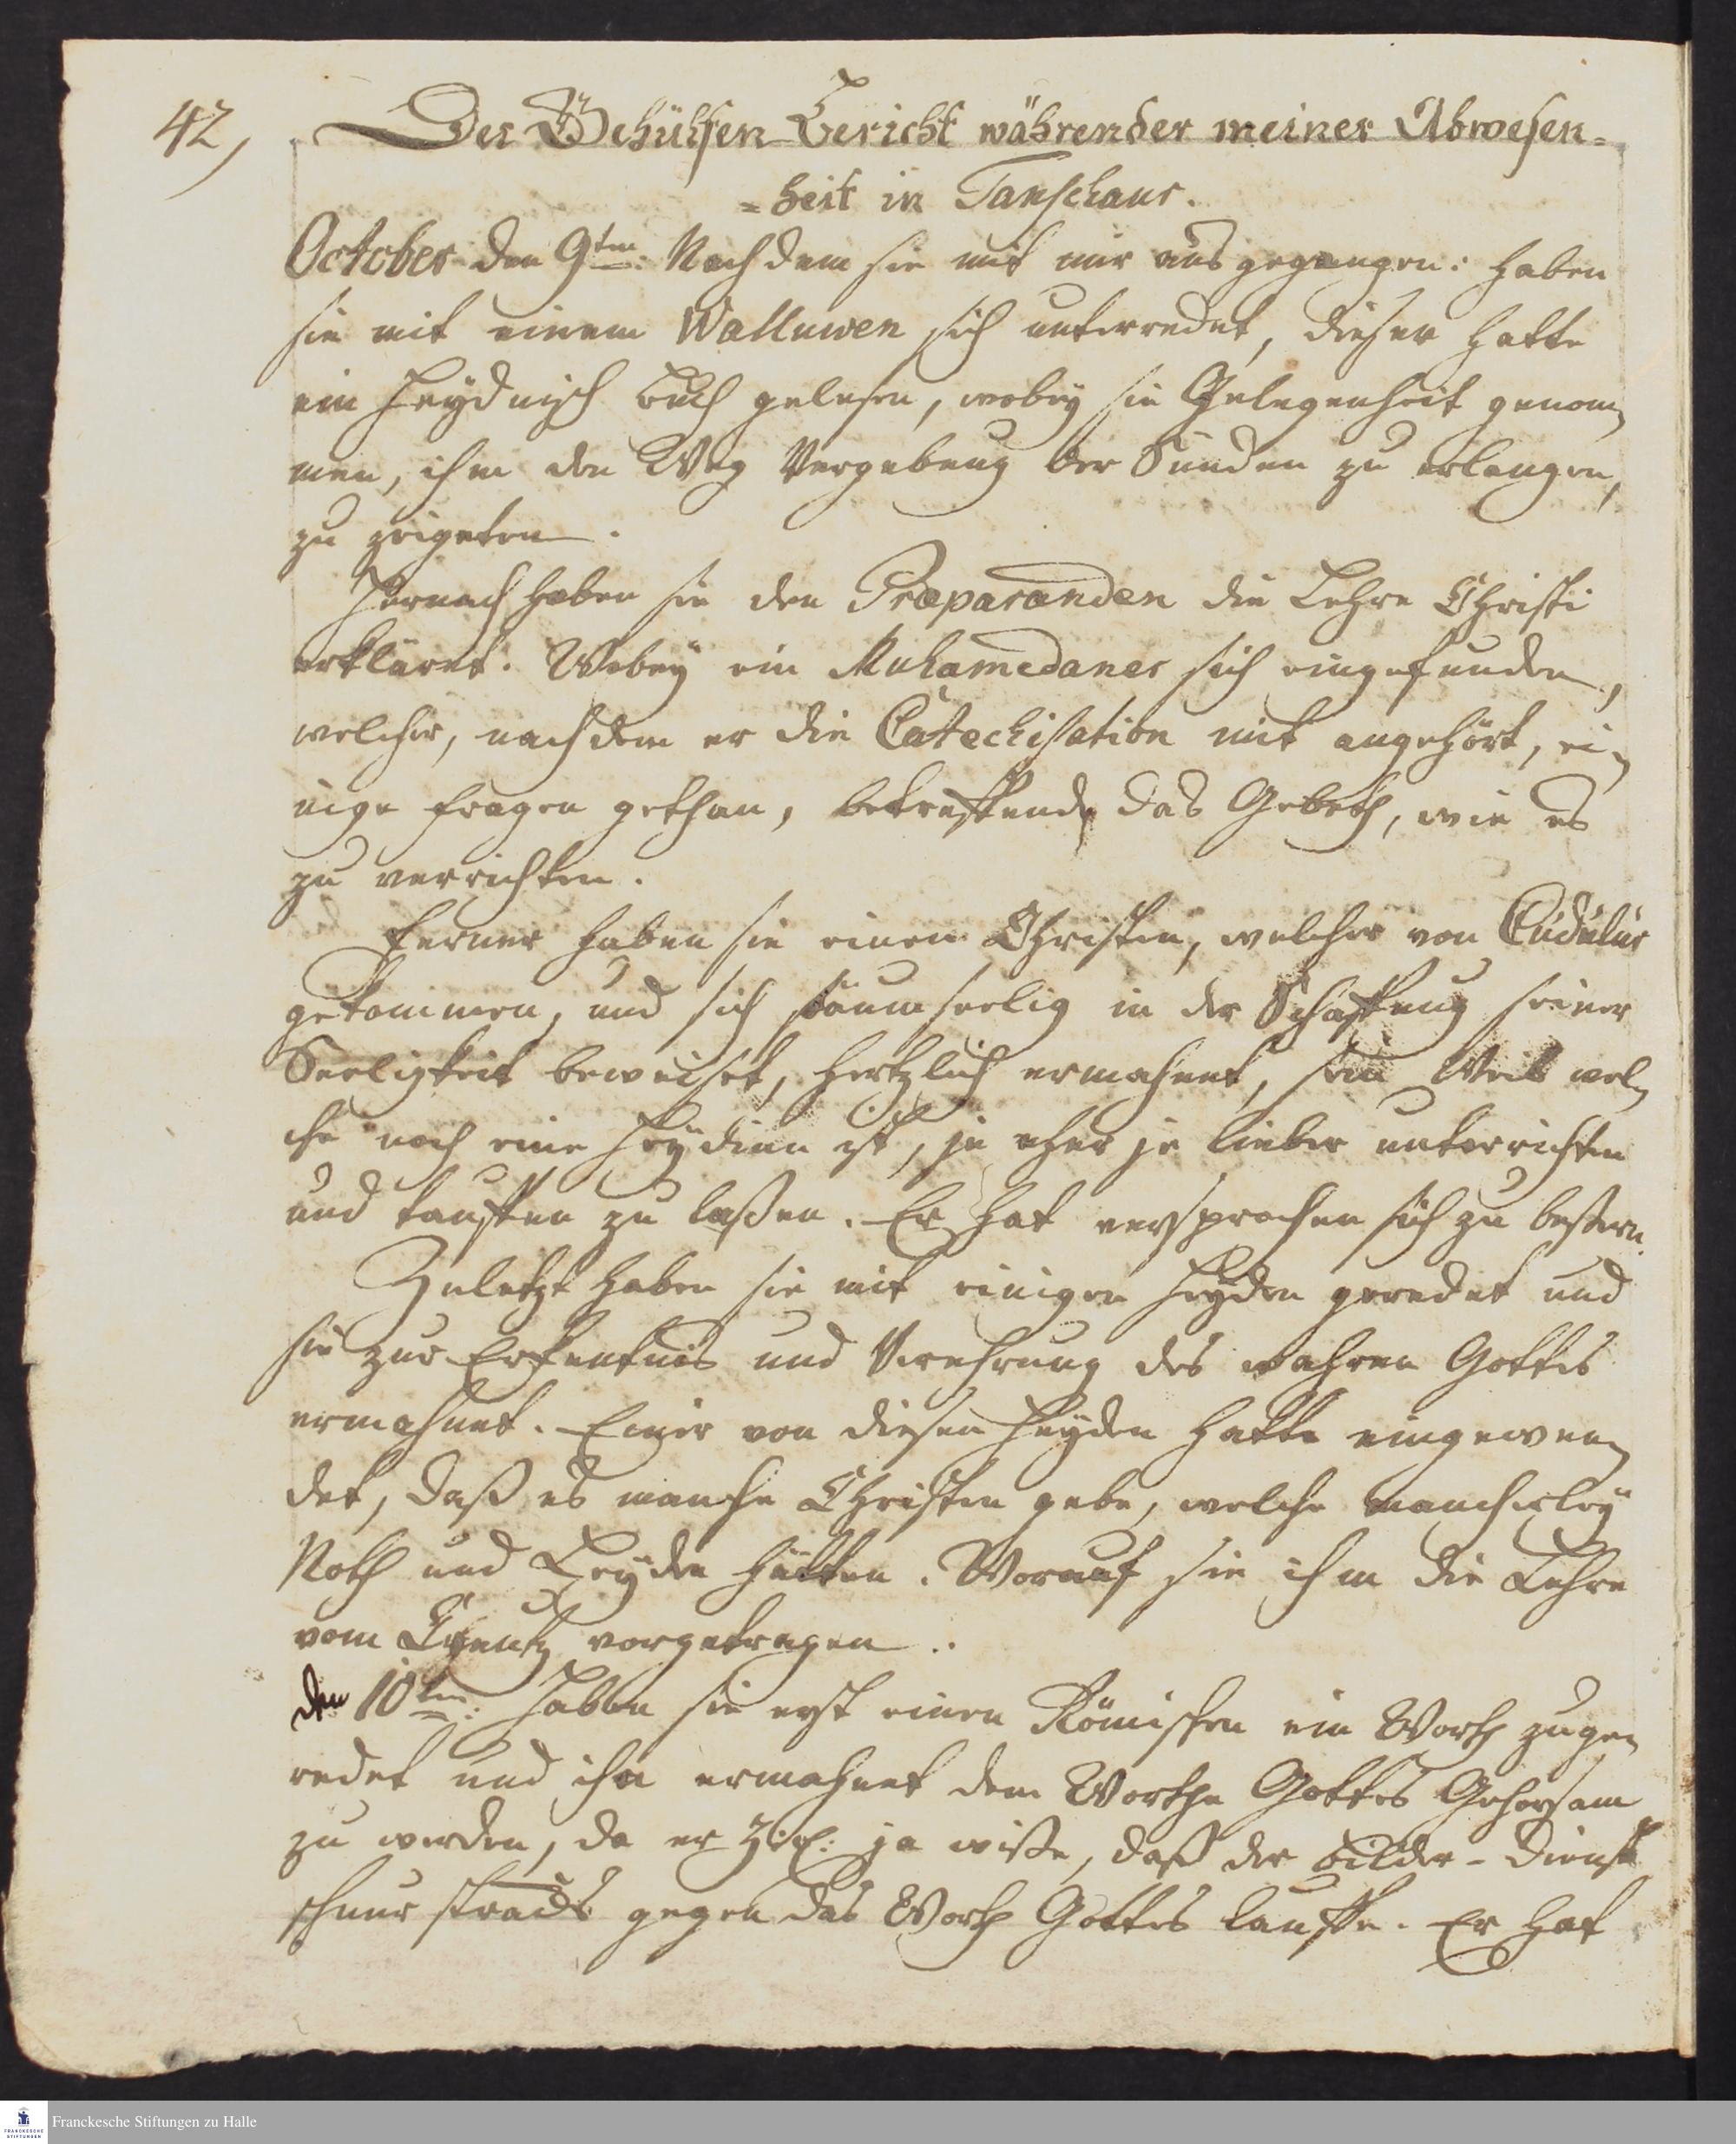 42,
Der Gehülfen Bericht währender meiner Abwesen=
=heit in Tanschaur.
October den 9ten: Nachdem sie mit mir ausgegangen: haben
sie mit einem Walluwen sich unterredet, dieser hatte
ein Heydnisch Buch gelesen, wobey sie Gelegenheit genom,
men, ihm den Weg Vergebung der Sünden zu erlangen,
zu zeigeten.
Hernach haben sie den Præparanden die Lehre Christi
erkläret. Wobey ein Muhamedaner sich eingefunden,
welcher, nachdem er die Catechisation mit angehört, ei,
nige Fragen gethan, betreffend das Gebeth, wie es
zu verrichten.
Ferner haben sie einen Christen, welcher von Cúdúlúr
gekommen, und sich säumseelig in der Schaffung seiner
Seeligkeit beweiset, hertzlich ermahnet, sein Weib wel,
che noch eine Heydinn ist, je eher je lieber unterrichten
und tauffen zu laßen. Er hat versprochen sich zu beßern.
Zuletzt haben sie mit einigen Heyden geredet und
sie zur Erkentnis und Verehrung des wahren Gottes
ermahnet. Einer von diesen Heyden hatte eingewen,
det, daß es manche Christen gebe, welche mancherley
Noth und Leyden hätten. Worauf sie ihm die Lehre
vom Creutz vorgetragen.
den 10ten: Haben sie erst einen Römischen ein Worth zuge,
redet und ihn ermahnet dem Worthe Gottes Gehorsam
zu werden, da er ja wiße, daß der Bilder-Dienst
schnur stracks gegen das Worth Gottes lauffe. Er hat
Franckesche Stiftungen zu Halle